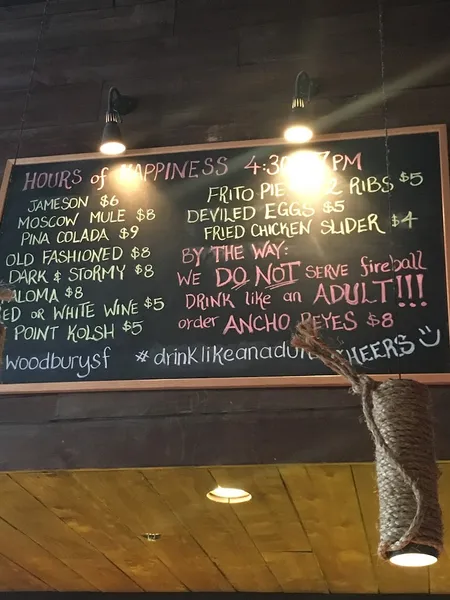 HOURS of HAPPINESS 4:30 7PM
JAMESON $6
MOSCOW MULE $8
PINA COLADA $9
OLD FASHIONED $8
DARK & STORMY $8
ALOMA $8
ED or WHITE WINE $5
POINT KOLSH $5
FRITO PIE 2 RIBS $5
DEVILED EGGS $5
FRIED CHICKEN SLIDER $4
BY THE WAY:
WE DO NOT SERVE fireball
DRINK like an ADULT!!!
order ANCHO REYES $8
woodburysf #drinklikeanadult CHEERS